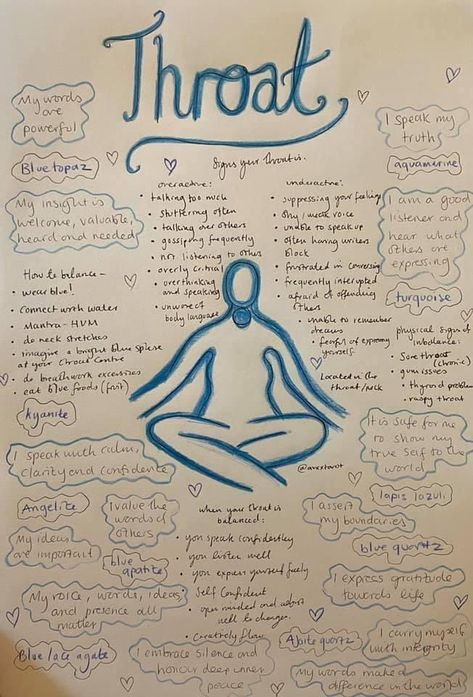 Throat
My words
are
powerful
I speak my
truth
Blue topaz
aquamarine
Signs your throat is.
My insight is
welcome, valuable,
heard and needed
overactive:
• talking too much
• stuttering often
• talking over others
• gossiping frequently
• not listening to others
• overly critical
• overthinking
and speaking
body language
underactive:
• suppressing your feelings
• shy / weak voice
• unable to speak up
• often having writers
block
• frustrated in
• frequently interrupted
• afraid of offending
others
• unable to remember
dreams
• fearful of
yourself
I am a good
listener and
hear what
others are
expressing
turquoise
How to balance -
• wear blue!
• connect with water
• Mantra - HUM
• do neck stretches
• imagine a bright blue
at your throat centre
• do breathwork excersises
• eat blue foods (fruit)
physical signs of
imbalance:
• Sore throat
(chronic)
• gum issues
• thyroid problem
• raspy throat
Located in the
throat/neck
Kyanite
I speak with calm,
clarity and confidence
It is safe for me
to show my
true self to the
world
@avaxtarot
Angelite
I value the
words of
others
lapis lazuli
I assert
my boundaries
My ideas
are important
blue
apatite
when your throat is
balanced:
• you speak confidently
• you listen well
• you express yourself freely
• Self confident
• open minded and
well to change.
• Creatively flow
blue quartz
I express gratitude
towards life
My voice, words, ideas
and presence all
matter
Blue lace agate
I embrace silence and
honour deep inner
peace
quartz
I carry myself
with integrity
My words make a
difference in the world